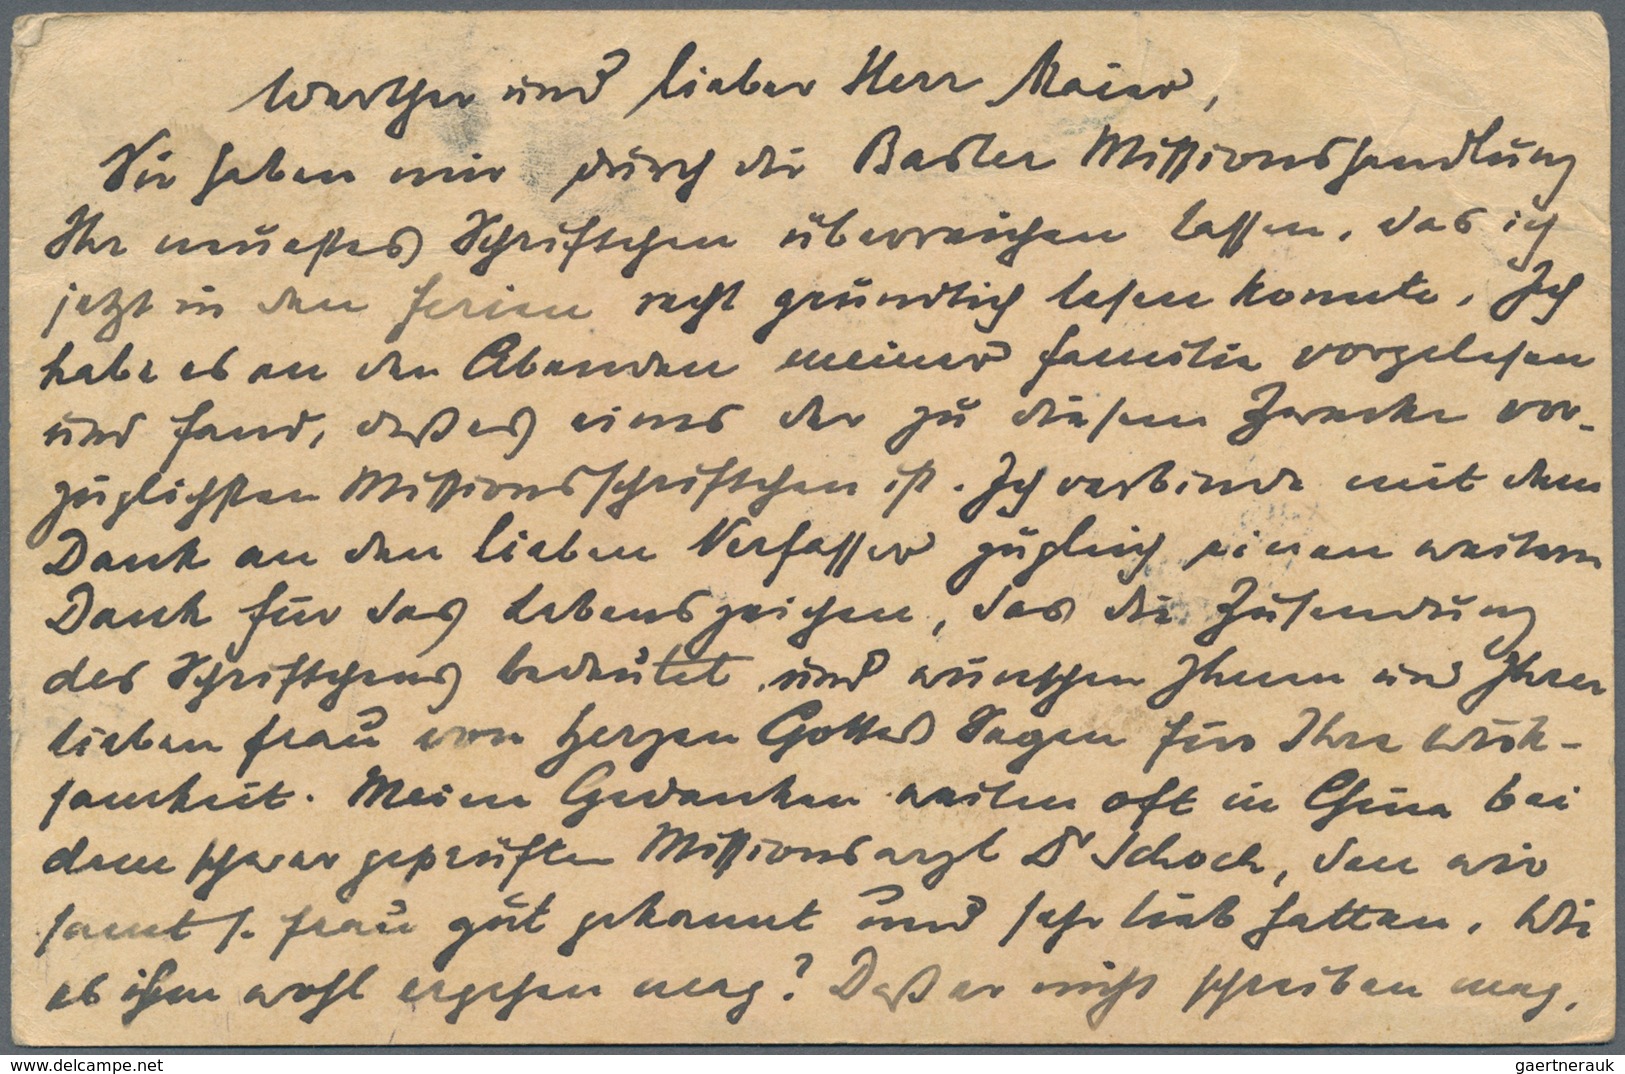 Werther und lieber Herr Maier,
Sie haben mir durch die Basler Missionshandlung
Ihr neuestes Schriftchen überreichen lassen, das ich
jetzt in den Ferien recht gründlich lesen konnte. Ich
habe es an den Abenden meiner Familie vorgelesen
und fand, daß es eines der zu diesem Zwecke vor-
züglichsten Missionsschriftchen ist. Ich verbinde mit dem
Dank an den lieben Verfasser zugleich einen weitern
Dank für das Lebenszeichen, das die Zusendung
des Schriftchens bedeutet und wünschen Ihnen und Ihrer
lieben Frau von Herzen Gottes Segen für Ihre Wirk-
samkeit. Meine Gedanken weilen oft in China bei
dem schwer geprüften Missionsarzt Dr Schoch, den wir
samt s. Frau gut gekannt und sehr lieb hatten. Wie
es ihm wohl ergehen mag? Daß er nicht schreiben mag,
www.delcampe.net
gaertnerauk